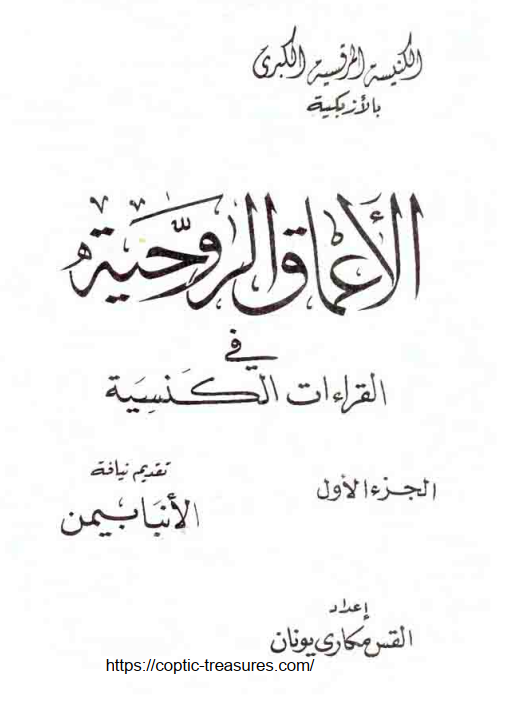 الكنيسة المرقسية الكبرى
بالأزبكية
الأعماق الروحية
في
القراءات الكنسية
الجزء الأول
تقديم نيافة
الأنبا بيمن
إعداد
القس مكارى يونان
https://coptic-treasures.com/